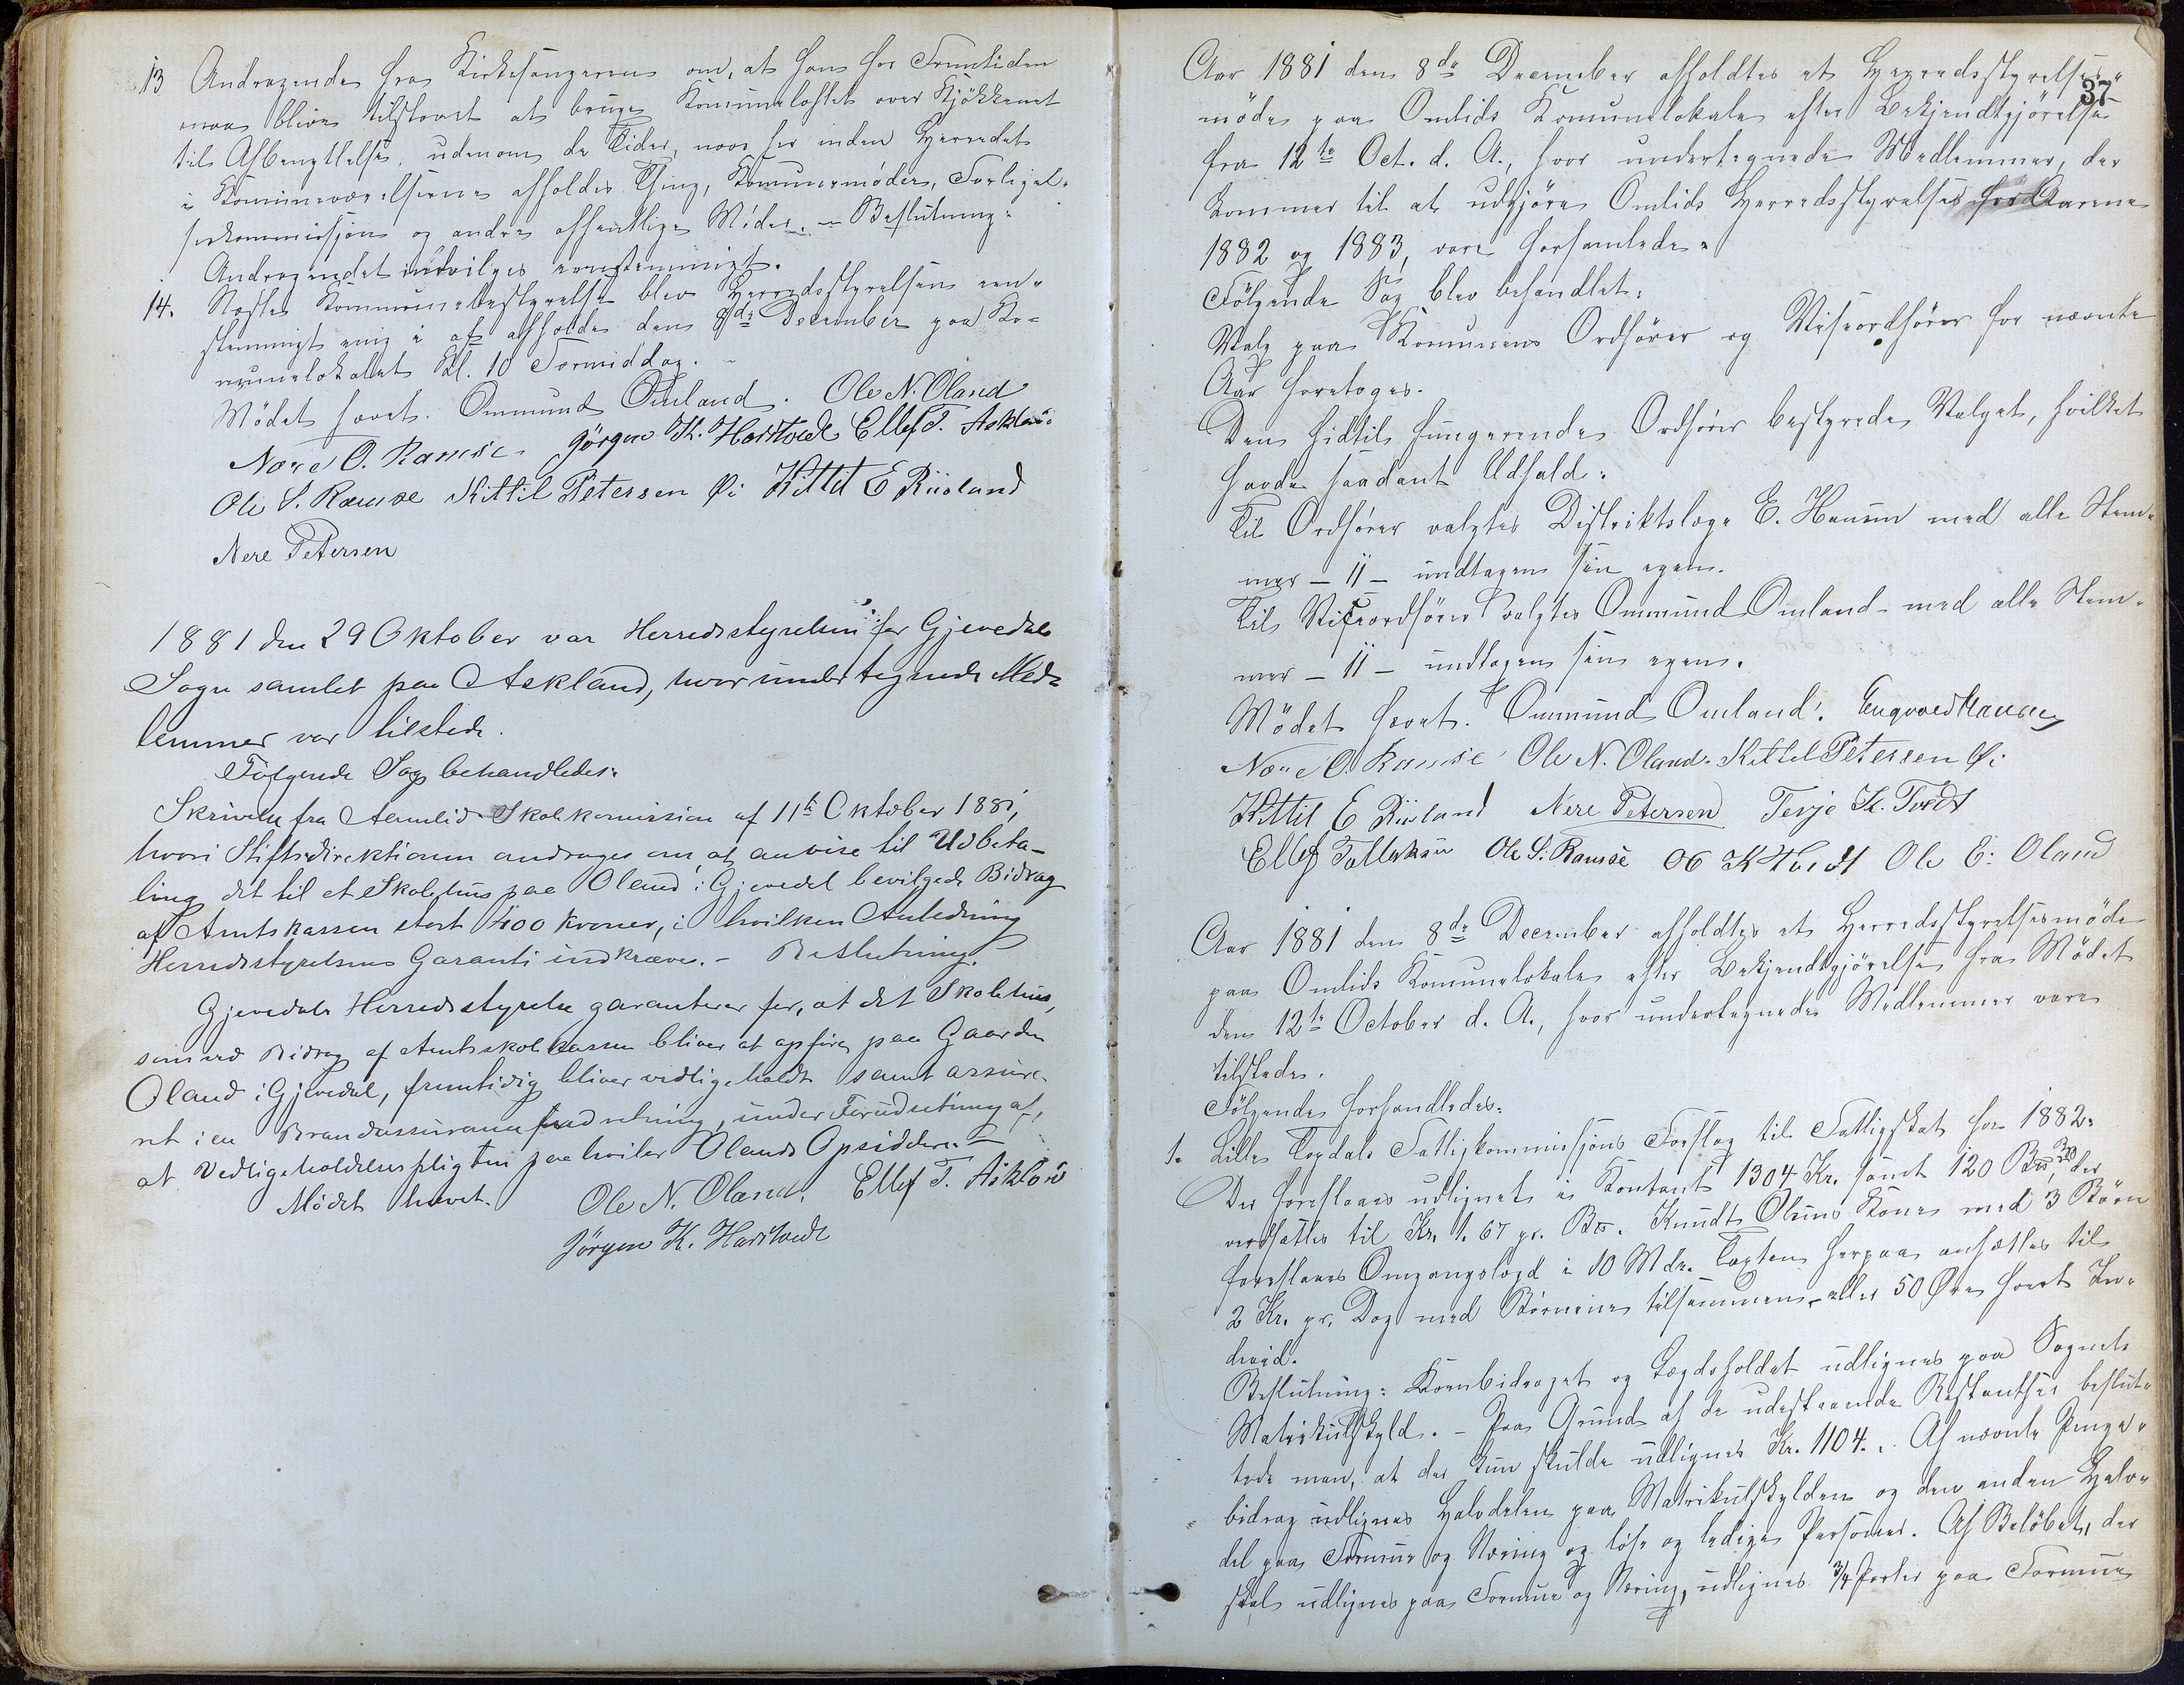 13 Andragende fra Kirkesangeren om, at han for Fremtiden
maa blive tilstaaet at bruge Komuneloftet over Kjökkenet
til Afbenyttelse, udenom de Tider, naar her inden Herredet
i Komuneværelserne afholdes Thing, Komunemöder, Forligel-
seskommissjon og andre offentlige Möder. - Beslutning:
Andragendet indvilges eenstemmigt.
14. Næste Kommunebestyrelse blev Herredsstyrelsen een-
stemmigt enig i at afholde den 8de December paa Ko-
munelokalet Kl. 10 Formiddag. -
Mödet hævet. Ommund Omland. Ole N. Oland
Næri O. Ramse Jörgen K. Harstvedt Ellef T. Asklan
Ole S. Ramse Kittil Petersen Öi Kittil E Riisland
Nere Petersen
1881 den 29 Oktober var Herredsstyrelsen for Gjevedals
Sogn samlet paa Askland, hvor undertegnede Med-
lemmer var tilstede.
Fölgende Sag behandledes:
Skrivelse fra Aamlid Skolekomission af 11te Oktober 1881,
hvori Stiftsdirektionen andrages om at anvise til Udbeta-
ling det til et Skolehus paa Oland i Gjevedal bevilgede Bidrag
af Amtskassen stort 400 Kroner, i hvilken Anledning
Herredsstyrelsens Garanti indkræves. - Beslutning.
Gjevedals Herredsstyrelse garanterer for, at det Skolehus,
som ved Bidrag af Amtsskolekassen bliver at opföre paa Gaarden
Oland i Gjevedal, fremtidig bliver vedligeholdt samt assure-
ret i en Brandassuranceindretning, under Forudsetning af,
at Vedligeholdelsespligten paa hviler Olands Opsiddere. -
Mödet hævet. Ole N. Oland. Ellef T. Asklan
Jörgen K. Harstvedt
37
Aar 1881 den 8de December afholdtes et Herredsstyrelses-
möde paa Omlids Komunelokale efter Bekjendtgjörelse
fra 12te Oct. d. A., hvor undertegnede Medlemmer, der
kommer til at udgjöre Omlids Herredsstyrelse for Aarene
1882 og 1883, vare forsamlede.
Fölgende Sag blev behandlet:
Valg paa Komunens Ordförer og Viseordförer for nævnte
Aar foretoges.
Den hidtil fungerende Ordförer bestyrede Valget, hvilket
havde saadant Udfald:
Til Ordförer valgtes Distriktslæge E. Hansen med alle Stem-
mer - 11 - undtagen sin egen.
Til Viseordförer valgtes Ommund Omland med alle Stem-
mer - 11 - undtagen sin egen.
Mödet hævet. Ommund Omland. Engvald Hansen
Næri O. Ramse Ole N. Oland. Kittel Petersen Öi
Kittil E Riisland Nere Petersen Terje K. Tvedt
Ellef Tallaksen Ole S. Ramse O K Tvedt Ole E. Oland
Aar 1881 den 8de December afholdtes et Herredsstyrelsesmöde
paa Omlids Komunelokale efter Bekjendtgjörelse fra Mödet
den 12te October d. A., hvor undertegnede Medlemmer vare
tilstede.
Fölgende forhandledes:
1. Lille Topdals Fattigkommissjons Forslag til Fattigskat for 1882.
Der foreslaaes udlignet i Kontant 1304 Kr. samt 120 Bu, der
ansættes til Kr. 1.67 pr. Bu. Knudt Olsens Kone med 3 Börn
foreslaaes Omgangslægd i 10 Mdr. Taxten herpaa ansættes til
2 Kr. pr. Dag med Börnene tilsammen, eller 50 Öre hvert In-
divid.
Beslutning: Kornbidraget og Lægdsholdet udlignes paa Sognets
Matrikulskyld. - Paa Grund af de udestaaende Restantser beslut-
tede man, at der kun skulde udlignes Kr. 1104. Af nævnte Penge-
bidrag udlignes Halvdelen paa Matrikulskylden og den anden Halv-
del paa Formue og Næring og löse og ledige Personer. Af Belöbet, der
skal udlignes paa Formue og Næring, udlignes 3/4 Parter paa Formue